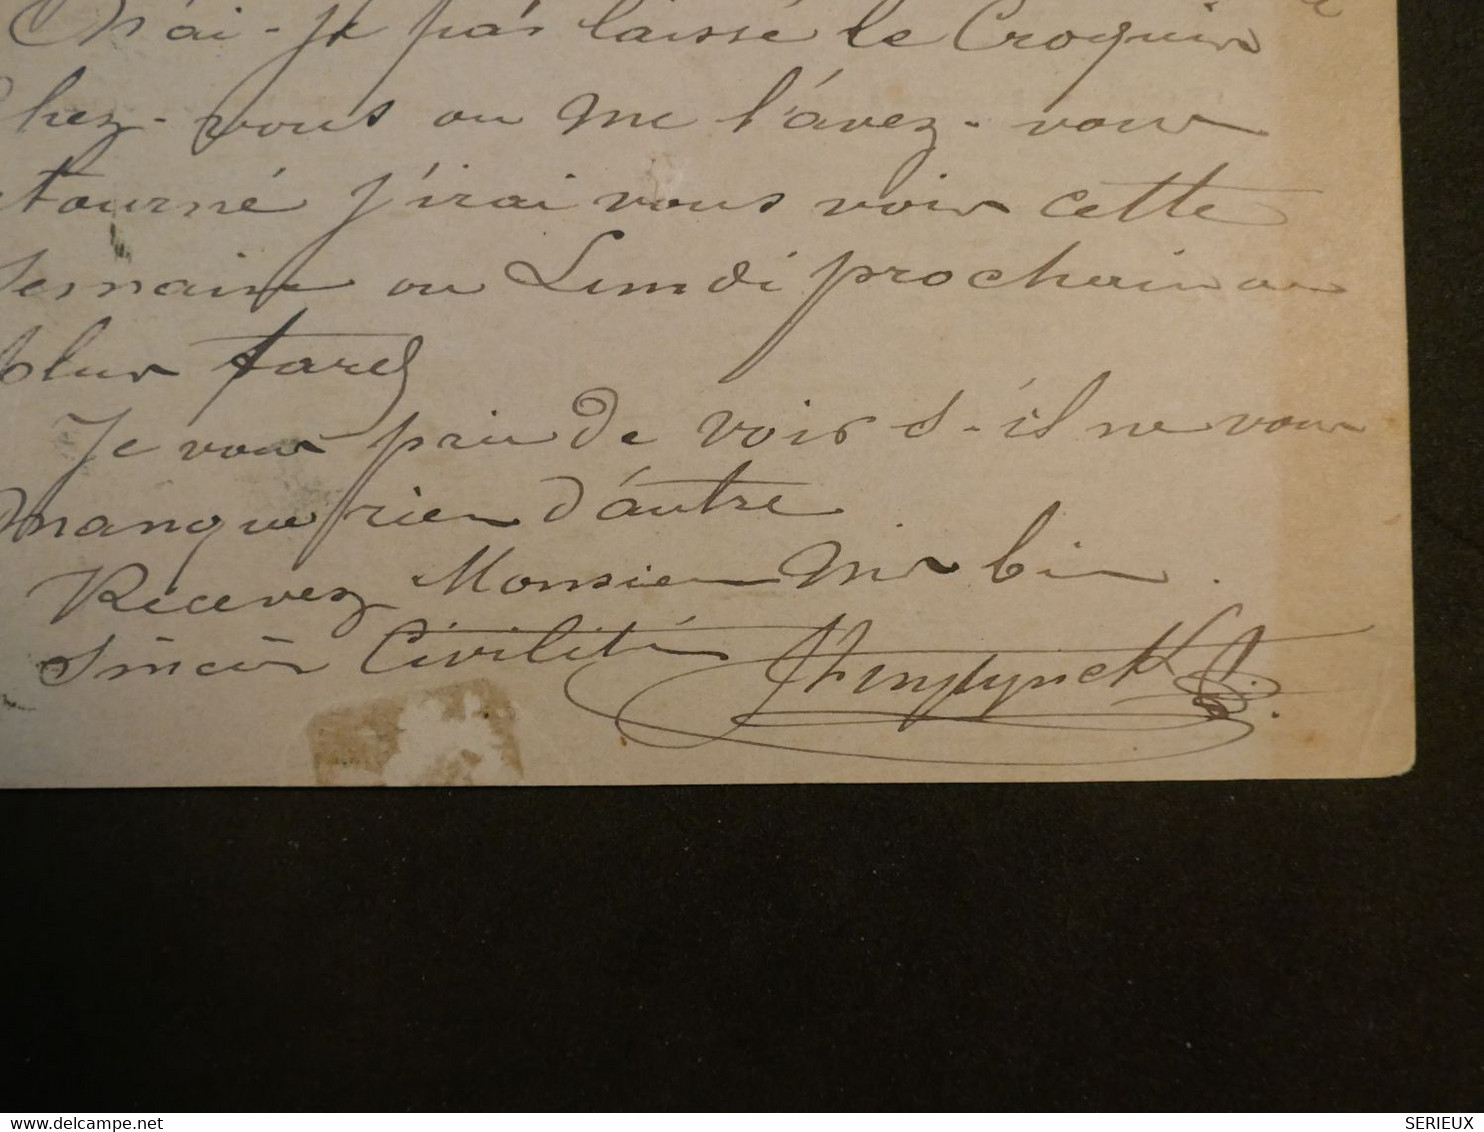 N'ai-je pas laissé le Croquis
chez-vous ou me l'avez-vous
retourné j'irai vous voir cette
semaine ou Lundi prochain au
plus tard
Je vous prie de voir s-il ne vous
manque rien d'autre
Recevez Monsieur mes bien
sincères Civilités
SERIEUX